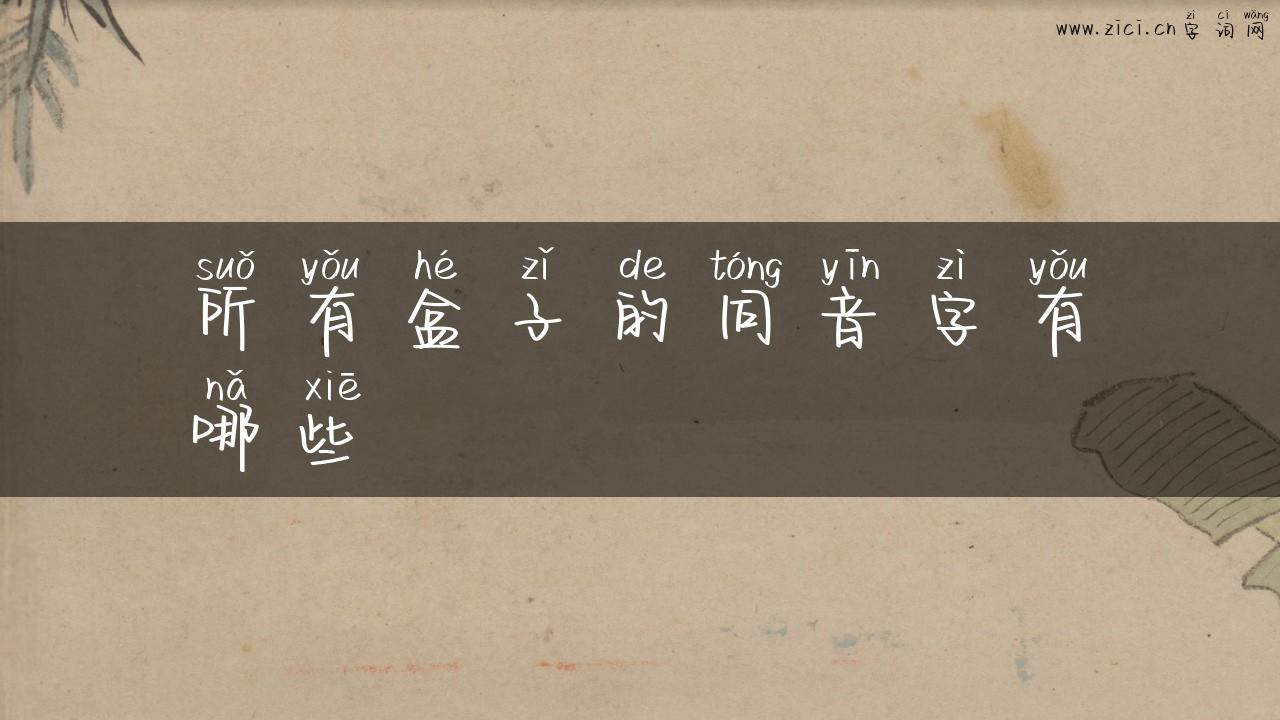 zì cí wǎng
www.zici.cn 字词网
suǒ yǒu hé zǐ de tóng yīn zì yǒu
所有盒子的同音字有
nǎ xiē
哪些